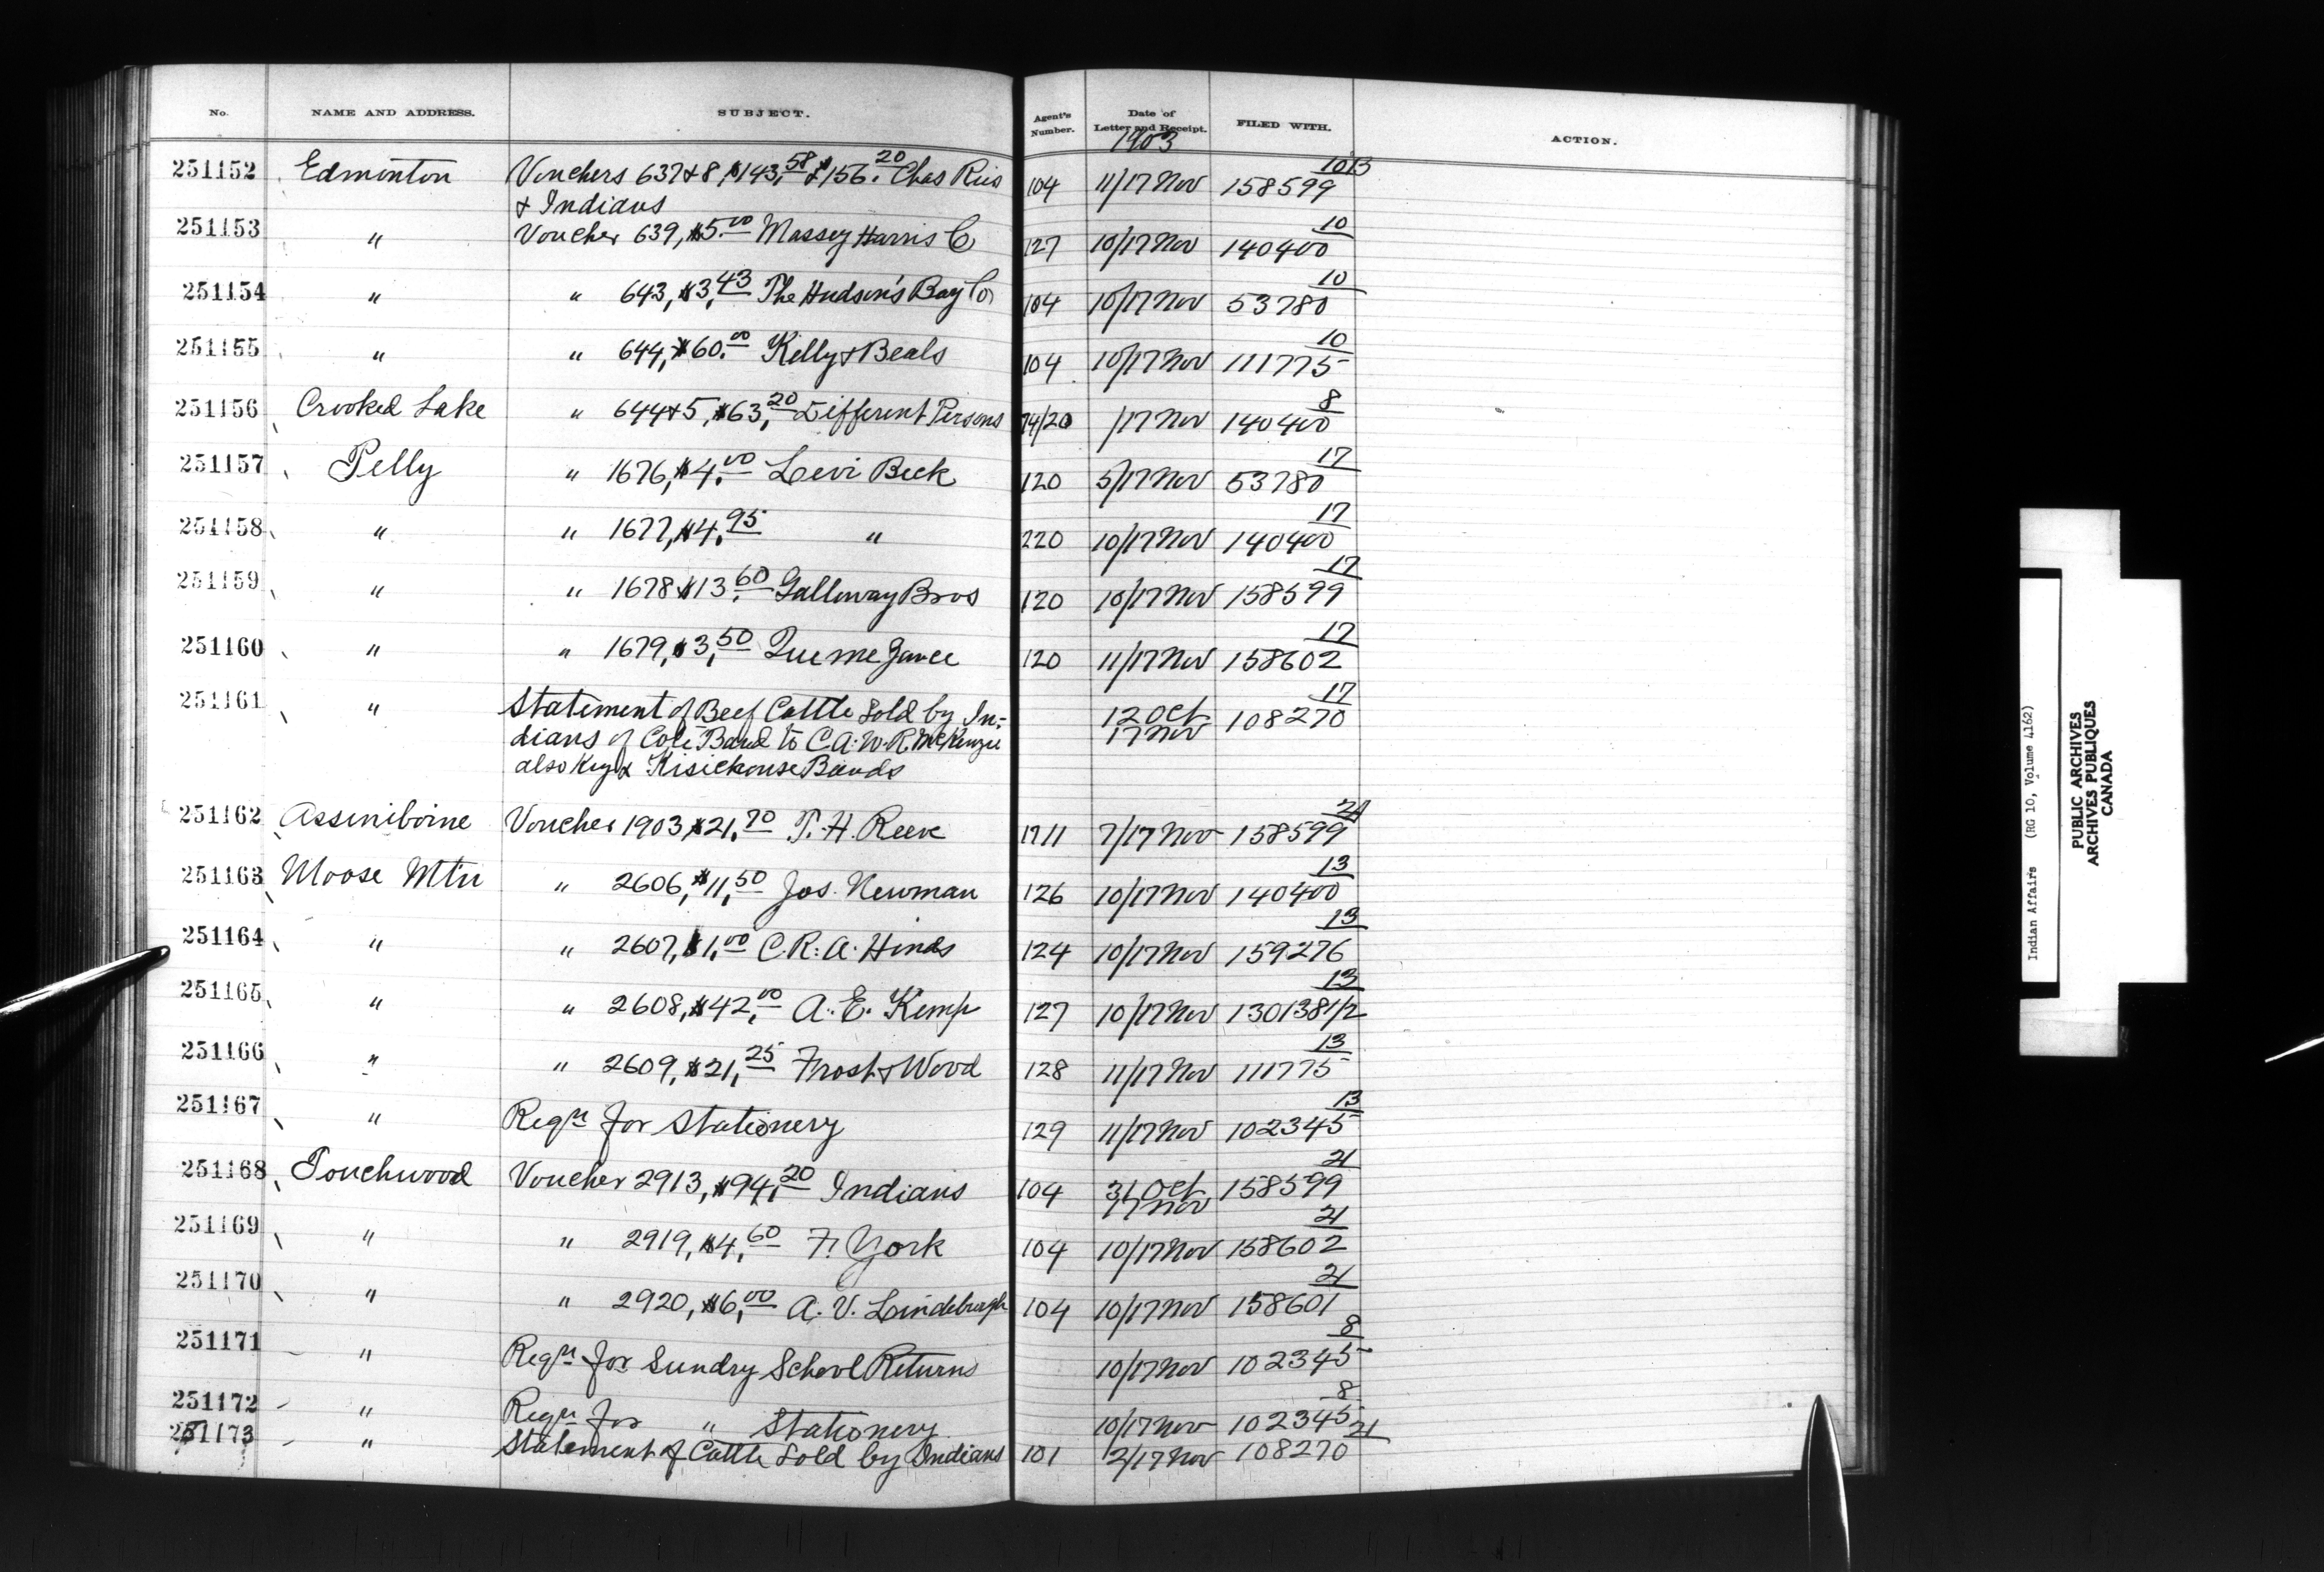 No. NAME AND ADDRESS. SUBJECT. Agent's Number. Date of Letter and Receipt. FILED WITH. ACTION.
1903
251152 Edmonton Vouchers 637 & 8, $143.58 & $156.20 Chas 104 11/17 Nov 158599 1013
& Indians
251153 " Voucher 639, $5.00 Massey Harris Co 127 10/17 Nov 140400 10
251154 " " 643, $3.43 The Hudson's Bay Co 104 10/17 Nov 53780 10
251155 " " 644, $60.00 Kelly & Beals 104 10/17 Nov 111775 10
251156 Crooked Lake " 644 & 5, $63.20 Different Persons 74/20 /17 Nov 140400 8
251157 Pelly " 1676, $4.00 Levi Beck 120 5/17 Nov 53780 17
251158 " " 1677, $4.95 " 220 10/17 Nov 140400 17
251159 " " 1678 $13.60 Galloway Bros 120 10/17 Nov 158599 17
251160 " " 1679, $3.50 120 11/17 Nov 158602 17
251161 " Statement of Beef Cattle Sold by In- 12 Oct 108270 17
dians of Cote Band to C.A.W.R. McKenzie 17 Nov
also Key & Bands
251162 Assiniboine Voucher 1903, $21.70 T. H. Reeve 1711 7/17 Nov 158599 24
251163 Moose Mtn " 2606, $11.50 Jos. Newman 126 10/17 Nov 140400 13
251164 " " 2607, $1.00 C. R. A. Hinds 124 10/17 Nov 159276 13
251165 " " 2608, $42.00 A. E. Kemp 127 10/17 Nov 130138 1/2 13
251166 " " 2609, $21.25 Frost & Wood 128 11/17 Nov 111775 13
251167 " Reqn for Stationery 129 11/17 Nov 102345 13
251168 Touchwood Voucher 2913, $94.20 Indians 104 31 Oct 158599 21
17 Nov
251169 " " 2919, $4.60 F. York 104 10/17 Nov 158602 21
251170 " " 2920, $6.00 A. V. Lindeburgh 104 10/17 Nov 158601 21
251171 " Reqn for Sundry School Returns 10/17 Nov 102345 8
251172 " Reqn for " Stationery 10/17 Nov 102345 8
251173 " Statement of Cattle Sold by Indians 101 12/17 Nov 108270 21
Indian Affairs (RG 10, Volume 4162)
PUBLIC ARCHIVES
ARCHIVES PUBLIQUES
CANADA